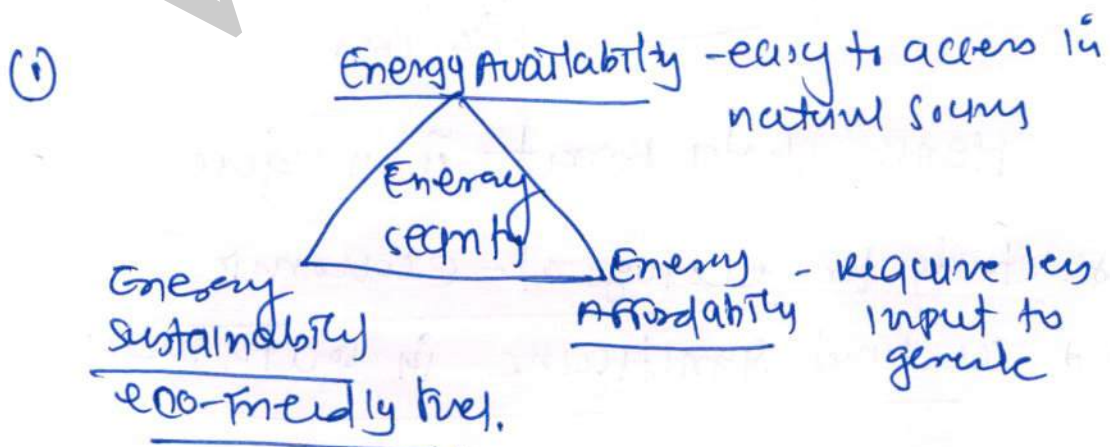 (i)
Energy Availability - easy to access in
natural sources
Energy
security
Energy
Sustainability
eco-friendly fuel.
Energy - require less
Affordability input to
generate